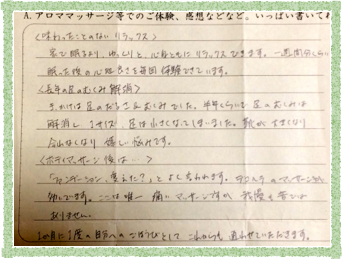 A. アロママッサージ等でのご体験、感想などなど。いっぱい書いて
<味わったことのない リラックス>
家で眠るより、ゆっくりと、心身ともに リラックスできます。一週間分くらい
眠った後の心地良さを毎回体験できています。
<長年の足のむくみ解消>
きっかけは足のだるさとむくみでした。半年くらいで足のむくみは
解消し 1サイズ 足は小さくなってしまいました。靴が大きくなり
合わなくなり 嬉しい悩みです。
<ボディマッサージ後は…>
「ファンデーション、変えた?」とよく言われます。 の マッサージが
効いています。ここは唯一 痛い マッサージですが 我慢も苦では
ありません。
1ヶ月に1度の自分へのごほうびとして これからも 通わせていただきます。